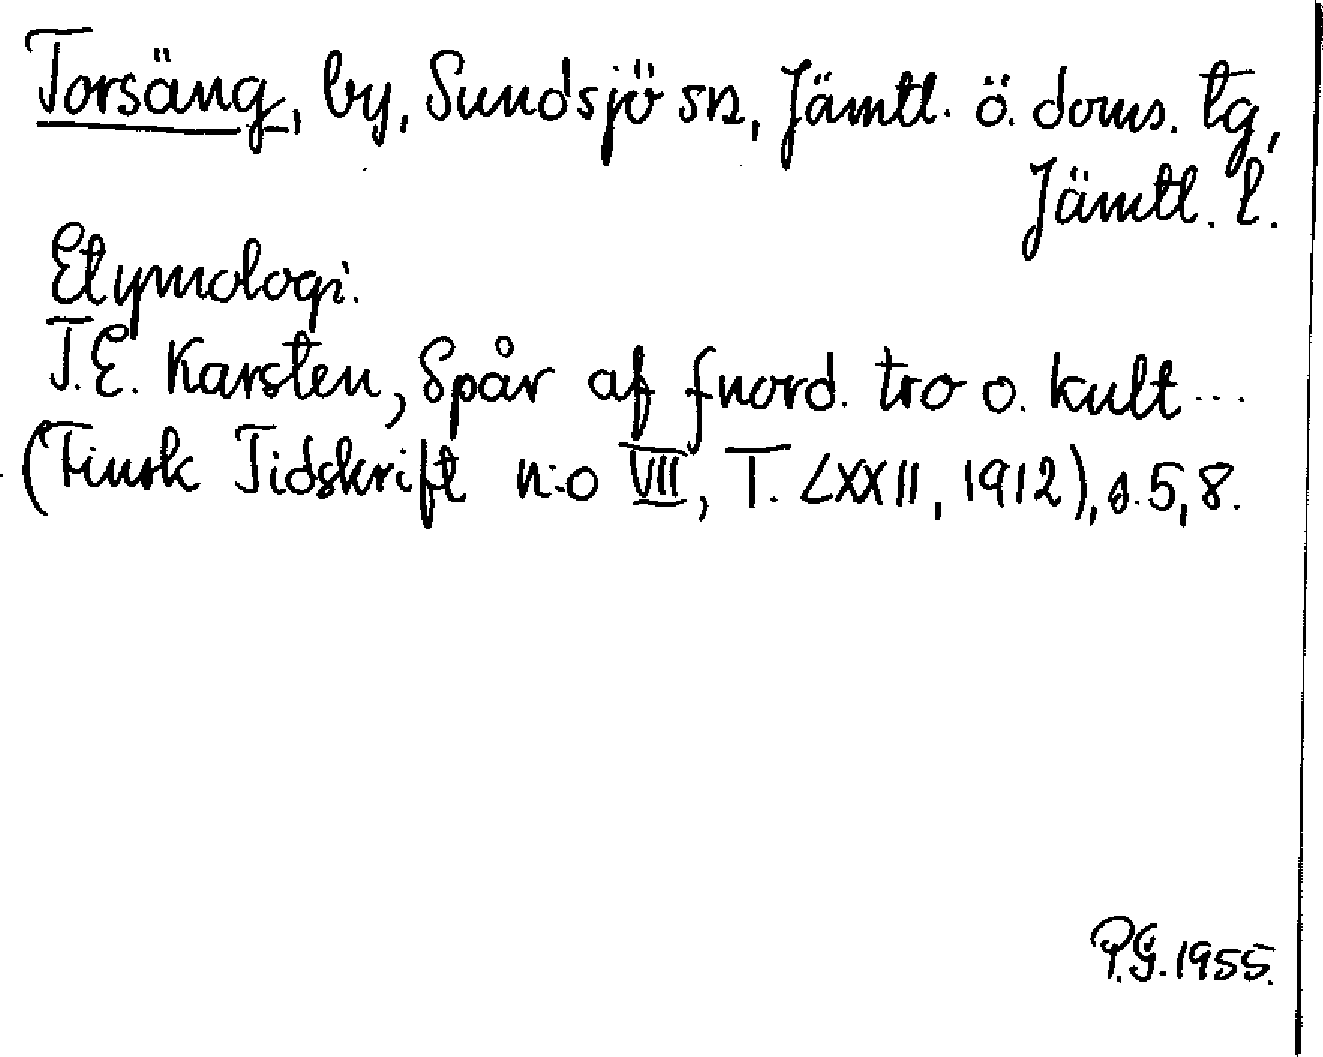 Torsäng, by, Sundsjö sn, Jämtl. ö. doms. tg,
Jämtl. l.
Etymologi.
T.E. Karsten, Spår af fnord. tro o. kult ...
(Finsk Tidskrift n:o VII, T. LXXII, 1912), s. 5, 8.
P.G. 1955.